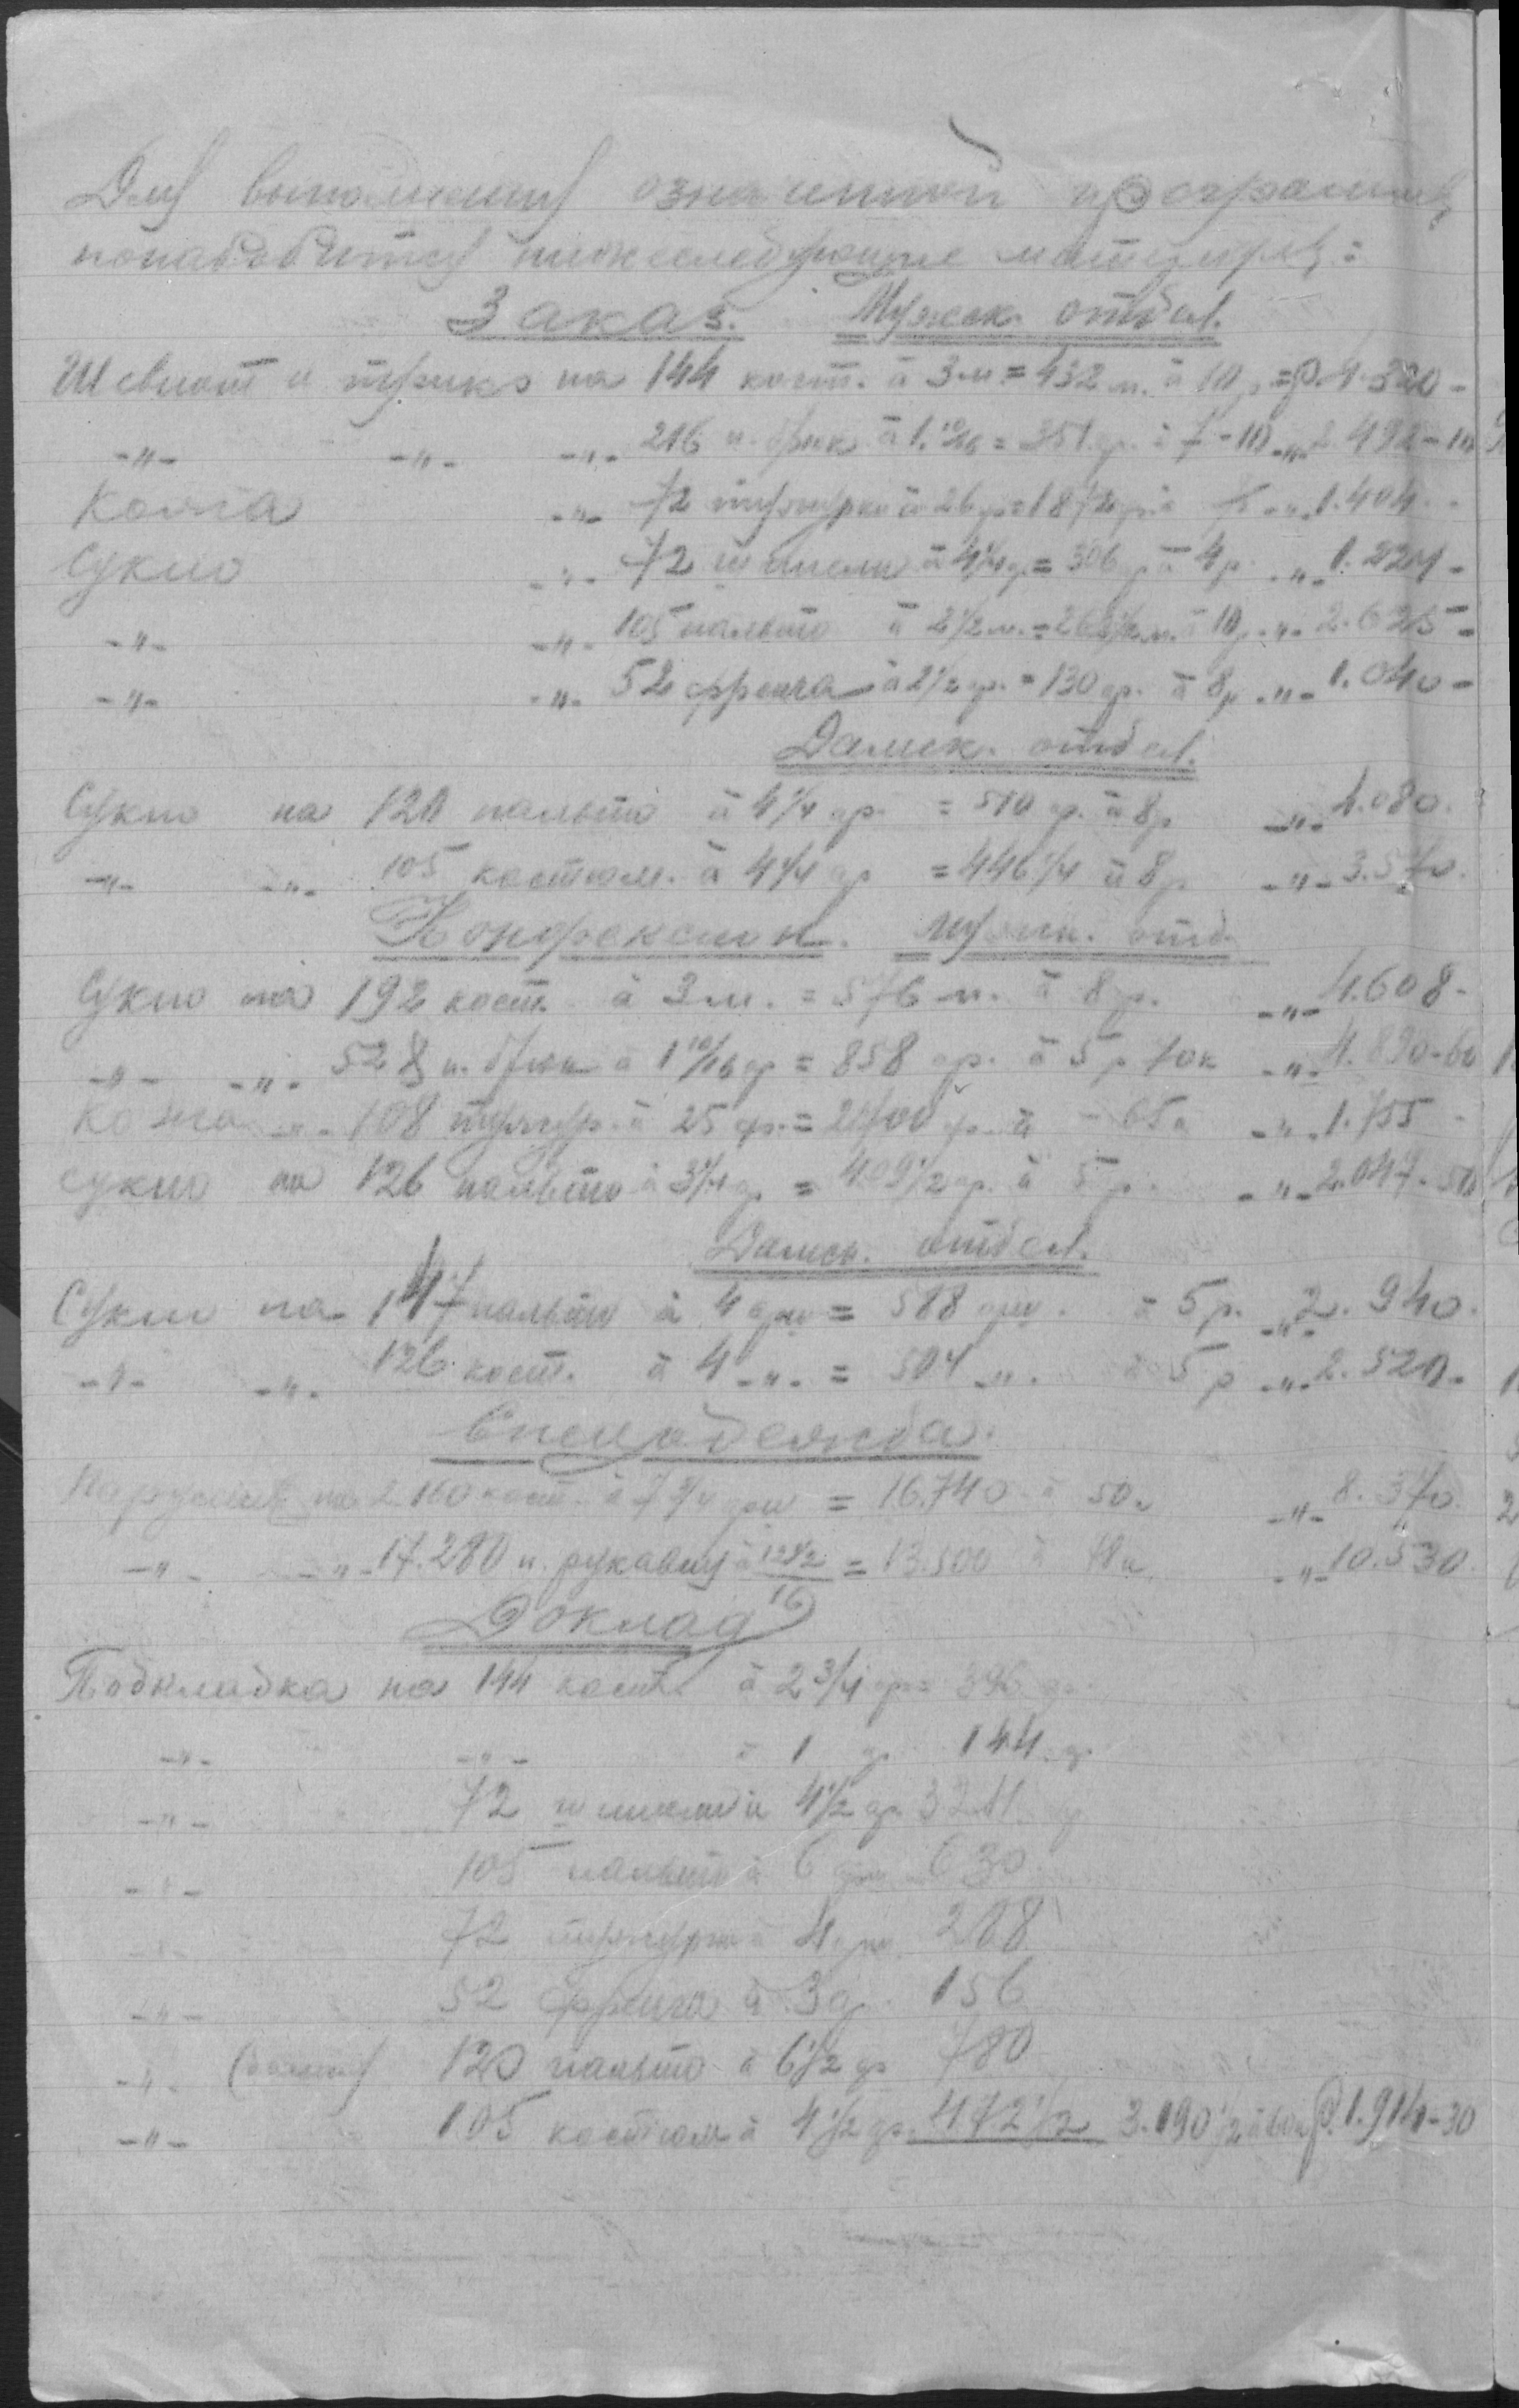 Для выполнения означенной программы
понадобится нижеследующие материалы:
Заказ. Мужск. отдел.
Шевиот и трико на 144 кост. à 3 м. = 432 м. à 10 р. = Р. 4.320 -
-"- -"- -"- 216 п. брюк à 1.10/16 = 351 ар. à 7-10 -"- 2.492-10
Кожа -"- 72 тужурки à 26 ф = 1872 ф. à 75 -"- 1.404 -
Сукно -"- 72 шинели à 4 1/4 ар = 306 ар à 4 р. -"- 1.224 -
-"- -"- 105 пальто à 2 1/2 м. = 262 1/2 м. à 10 р. -"- 2.625 -
-"- -"- 52 френча à 2 1/2 ар. = 130 ар. à 8 р -"- 1.040 -
Дамск. отдел.
Сукно на 120 пальто à 4 1/4 ар. = 510 ар. à 8 р -"- 4.080.
-"- -"- 105 костюм. à 4 1/4 ар = 446 1/4 à 8 р -"- 3.570.
Конфексион. мужск. отд.
Сукно на 192 кост. à 3 м. = 576 м. à 8 р. -"- 4.608 -
-"- -"- 528 п. брюк à 1 10/16 ар = 858 ар. à 5 р 70 к -"- 4.890-60
Кожа -"- 108 тужур. à 25 ф. = 2700 ф. à - 65 к -"- 1.755 -
Сукно на 126 пальто à 3 1/4 ар = 409 1/2 ар. à 5 р. -"- 2.047-50
Дамск. отдел.
Сукно на 147 пальто à 4 арш = 588 арш. à 5 р. -"- 2.940.
-"- -"- 126 кост. à 4 -"- = 504 -"- à 5 р -"- 2.520 -
Спецодежда.
Парусина на 2160 кост. à 7 3/4 арш = 16.740 à 50 к -"- 8.370.
-"- -"- 17.280 п. рукавиц à 12 1/2/16 = 13.500 à 78 к -"- 10.530.
Доклад
Подкладка на 144 кост. à 2 3/4 ар = 396 ар.
-"- -"- à 1 ар 144 ар.
-"- 72 шинели à 4 1/2 ар 324 ар
-"- 105 пальто à 6 арш 630
-"- 72 тужурки à 4 арш. 288
-"- 52 френча à 3 ар. 156
-"- (дамск) 120 пальто à 6 1/2 ар 780
-"- 105 костюм à 4 1/2 ар. 472 1/2 3.190 1/2 à 60 к Р. 1.914-30